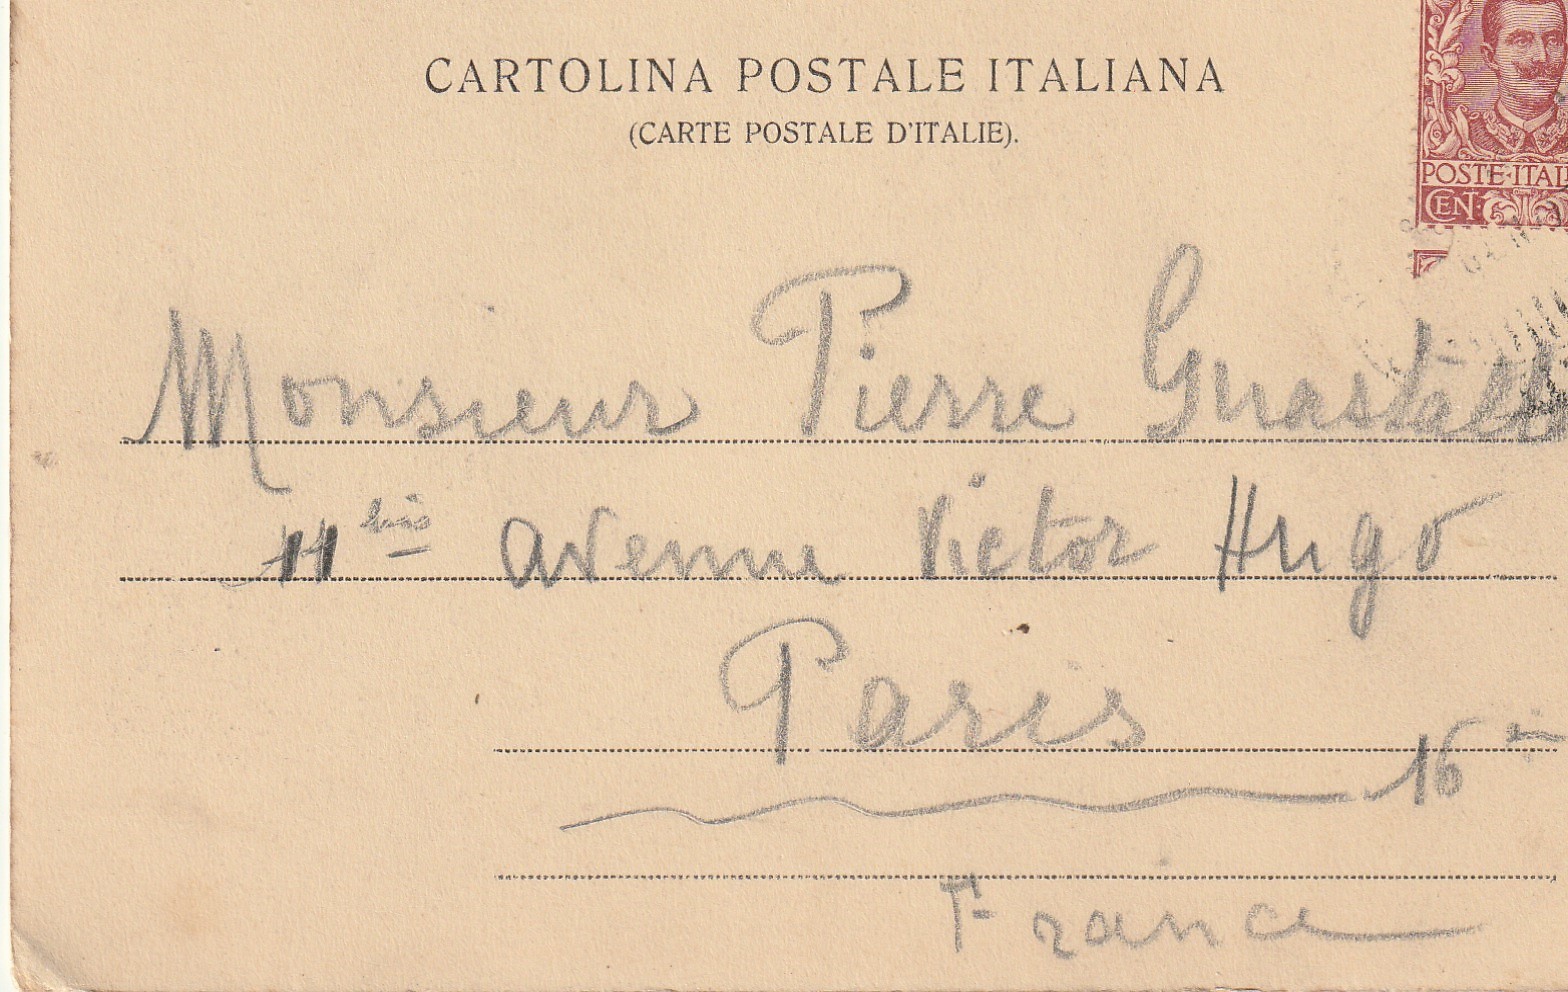 CARTOLINA POSTALE ITALIANA
(CARTE POSTALE D'ITALIE).
POSTE·ITALI
CEN.
Monsieur Pierre
11 bis avenue Victor Hugo
Paris
16
France